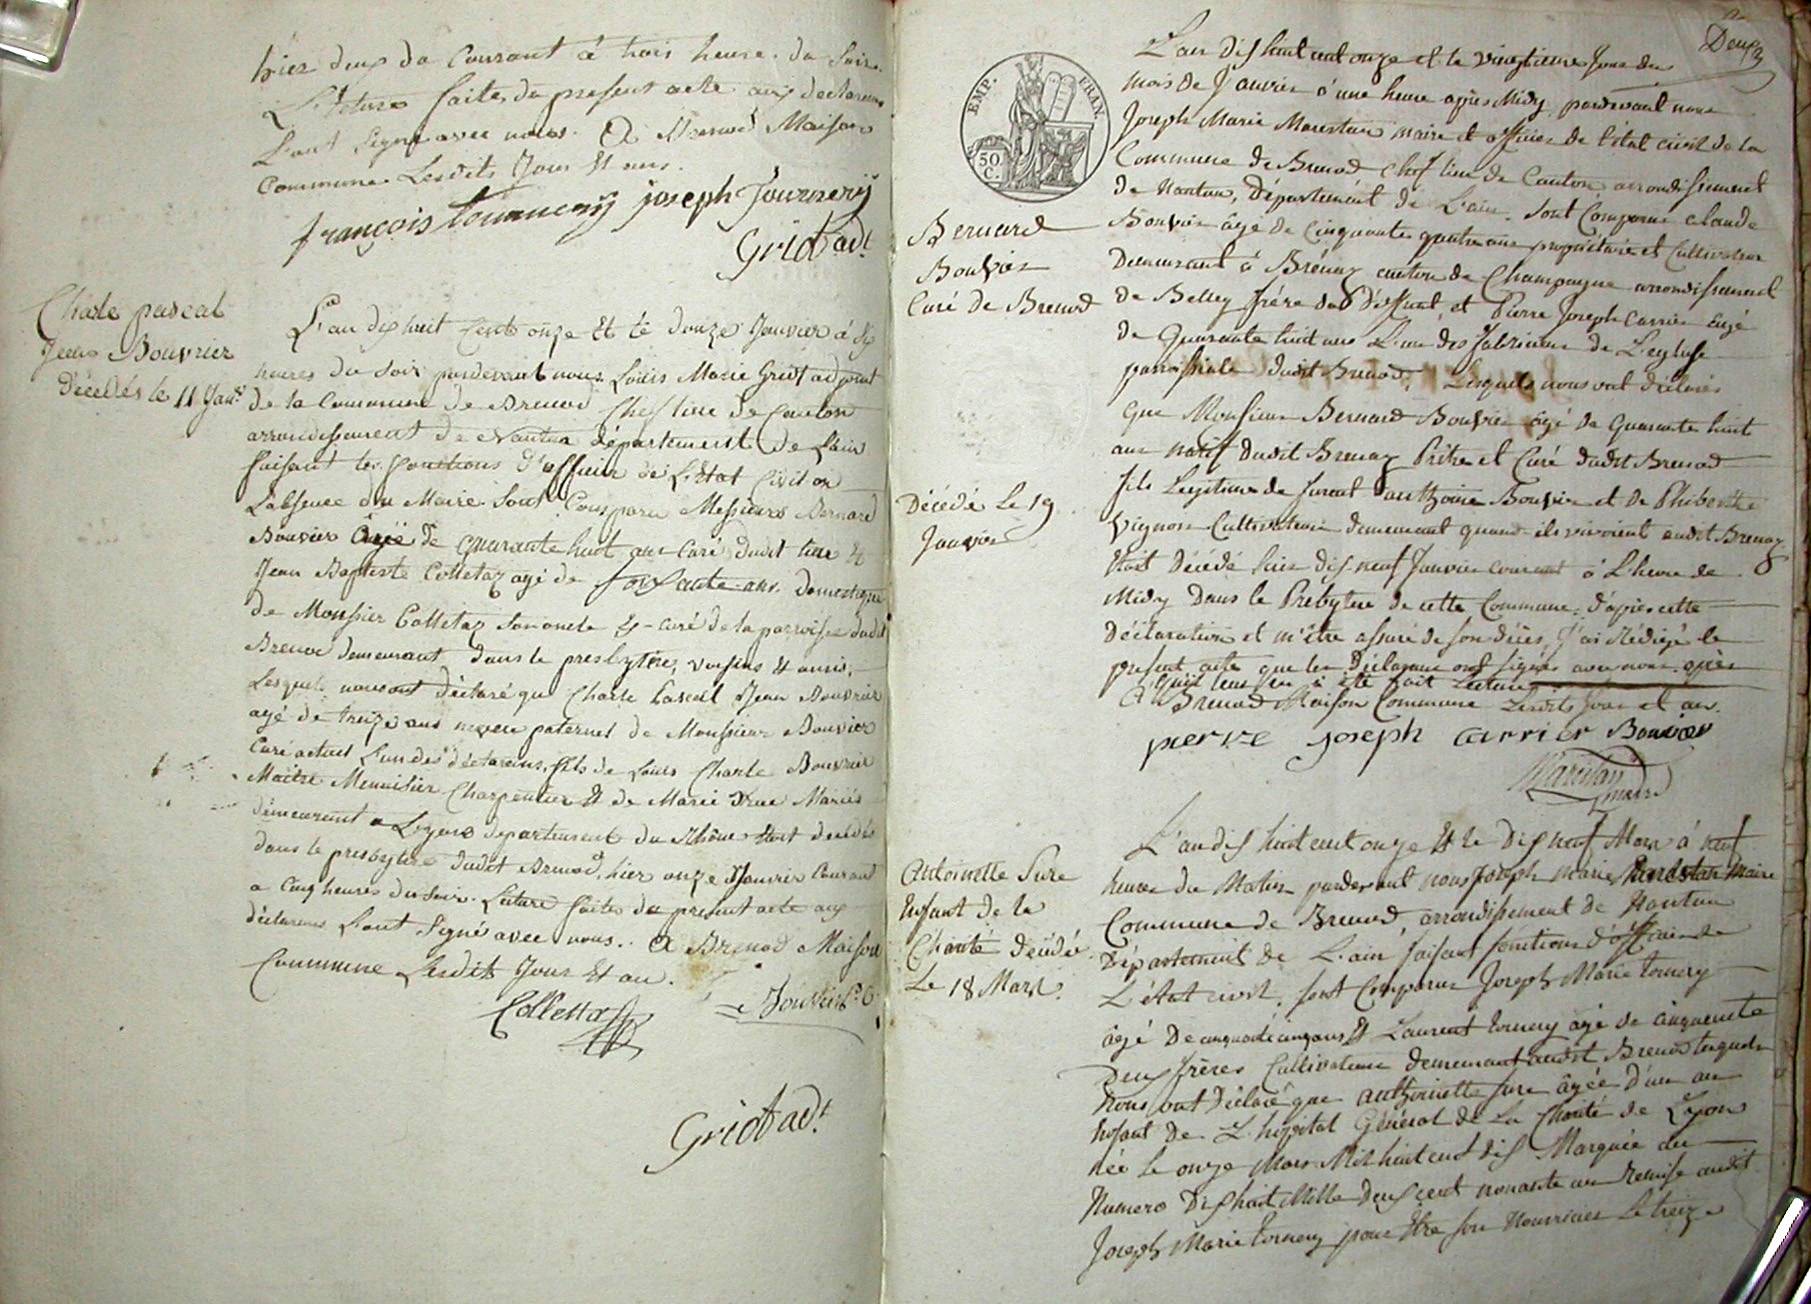 hier deux du Courant à trois heure du Soir.
Lecture faites du present acte aux declarans
L'ont Signé avec nous. A Brenod Maison
Commune Lesdits Jour Et an.
françois tournery joseph Tournery
Griot adt
Charle pascal
Jean Bouvrier
Décédés le 11 Janr
L'an dix huit Cents onze Et le douze Janvier à Six
heures du Soir pardevant nous Louis Marie Griot adjoint
de la Commune de Brenod Chef lieu de Canton
arrondissement de Nantua département de L'ain
faisant les fonctions d'officier de L'Etat Civil en
L'absence du Maire Sont Comparu Messieurs Bernard
Bouvier Agé de quarante huit ans Curé dudit lieu &
Jean Baptiste Colletaz agé de Soixante ans domestique
de Monsier Colletaz Son oncle Ex-curé de la parroisse dudit
Brenod demeurant dans le presbytère, voisins Et amis,
Lesquels nous ont déclaré que Charle Pascal Jean Bouvrier
agé de treize ans neveu paternel de Monsieur Bouvier
Curé actuel L'un des déclarans, fils de Louis Charle Bouvrier
Maître Menuisier Charpentier Et de Marie Drue Mariés
demeurant a Lyons departement du Rhône Etait decedé
dans le presbytère dudit Brenod, hier onze Janvier Courant
a Cinq heures du Soir. Lecture faites du present acte aux
déclarans L'ont Signé avec nous. A Brenod Maison
Commune Lesdits Jour Et an.
Colletaz Bouvier C.
Griot adt
Deux
EMP. FRAN.
50 C.
L'an dix huit cent onze et le vingtieme Jour du
mois de Janvier à une heure après Midy pardevant nous
Joseph Marie Marestan maire et officier de l'état civil de la
Commune de Brenod Chef lieu de Canton arrondissement
de Nantua, Département de L'ain. Sont Comparus claude
Bouvier âgé de cinquante quatre ans propriétaire et Cultivateur
Demeurant à Brénaz canton de Champagne arrondissement
de Belley frère du Déffunt, et Pierre Joseph Carrier âgé
de Quarante huit ans L'un des fabriciens de L'eglise
parroissiale dudit Brenod, Lesquels nous ont déclarés
Que Monsieur Bernard Bouvier âgé de Quarante huit
ans natif dudit Brenaz Prêtre et Curé dudit Brenod
fils Legitime de furent anthoine Bouvier et de Philiberthe
Vignon Cultivateurs demeurant quand ils vivoient audit Brenaz
Etoit Décédé hier dix neuf Janvier courant à L'heure de
Midy Dans le Prebytere de cette Commune; d'après cette
Déclaration et m'être assuré de son décès, J'ai Rédigé le
present acte que les Déclarans ont signés avec nous après
Qu'il leur en a été fait Lecture
A Brenod Maison Commune Lesdits Jour et an.
pierre joseph carrier Bouvier
Marestan
maire
Bernard
Bouvier
Curé de Brenod
Décédé Le 19
Janvier
Antoinette Sure
Enfant de la
Charité décédé
Le 18 Mars.
L'an dix huit cent onze Et le Dix neuf Mars à neuf
heures du Matin pardevant nous Joseph Marie Marestan Maire
Commune de Brenod, arrondissement de Nantua
Département de L'ain faisant fonctions d'officier de
L'état civil, sont Comparus Joseph Marie tornery
âgé De cinquante cinq ans Et Laurent tornery âgé de cinquante
Deux frères Cultivateurs demeurant audit Brenod lesquels
Nous ont Déclaré que anthoinette sure âgée D'un an
Enfant De L'hôpital Général de La Charité de Lyon
née le onze Mars Mil huit cent dix Marquée du
Numero Dix huit Mille deux cent nonante un Remise audit
Joseph Marie tornery pour Etre son Nourricier le treize